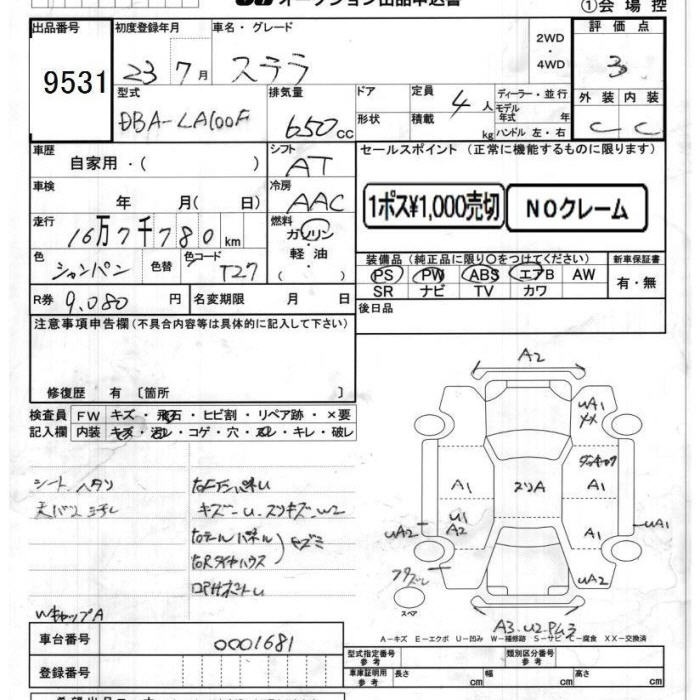 オークション出品申込書
①会場控
出品番号 初度登録年月 車名・グレード 2WD・4WD 評価点
9531 23 7月 ステラ 3
型式 排気量 ドア 定員 4人 ディーラー・並行 外装 内装
DBA-LA100F 650cc 形状 積載 kg モデル年式 年式 ハンドル 左・右 C C
車歴 自家用・( ) シフト AT セールスポイント (正常に機能するものに限ります)
車検 年 月( 日) 冷房 AAC
1ポス¥1,000売切 NOクレーム
走行 16万7千780km 燃料 ガソリン 軽油 ( )
色 シャンパン 色替 色コード T27
装備品 (純正品に限り○をつけてください) 新車保証書
PS PW ABS エアB AW 有・無
SR ナビ TV カワ
R券 9.080円 名変期限 月 日 後日品
注意事項申告欄 (不具合内容等は具体的に記入して下さい)
修復歴 有 [箇所 ]
検査員 FW キズ・飛石・ヒビ割・リペア跡・×要
記入欄 内装 キズ・汚レ・コゲ・穴・スレ・キレ・破レ
シートヘタリ
キズ
WキャップA
A2
UA1
A1
スリA
A1
U1
A2
A1
UA2
UA1
UA2
スペア
A3.U2
A−キズ E−エクボ U−凹み W−補修跡 S−サビ C−腐食 XX−交換済
車台番号 0001681
型式指定番号 参考 類別区分番号 参考
登録番号
車庫証明用 参考 長さ cm 幅 cm 高さ cm